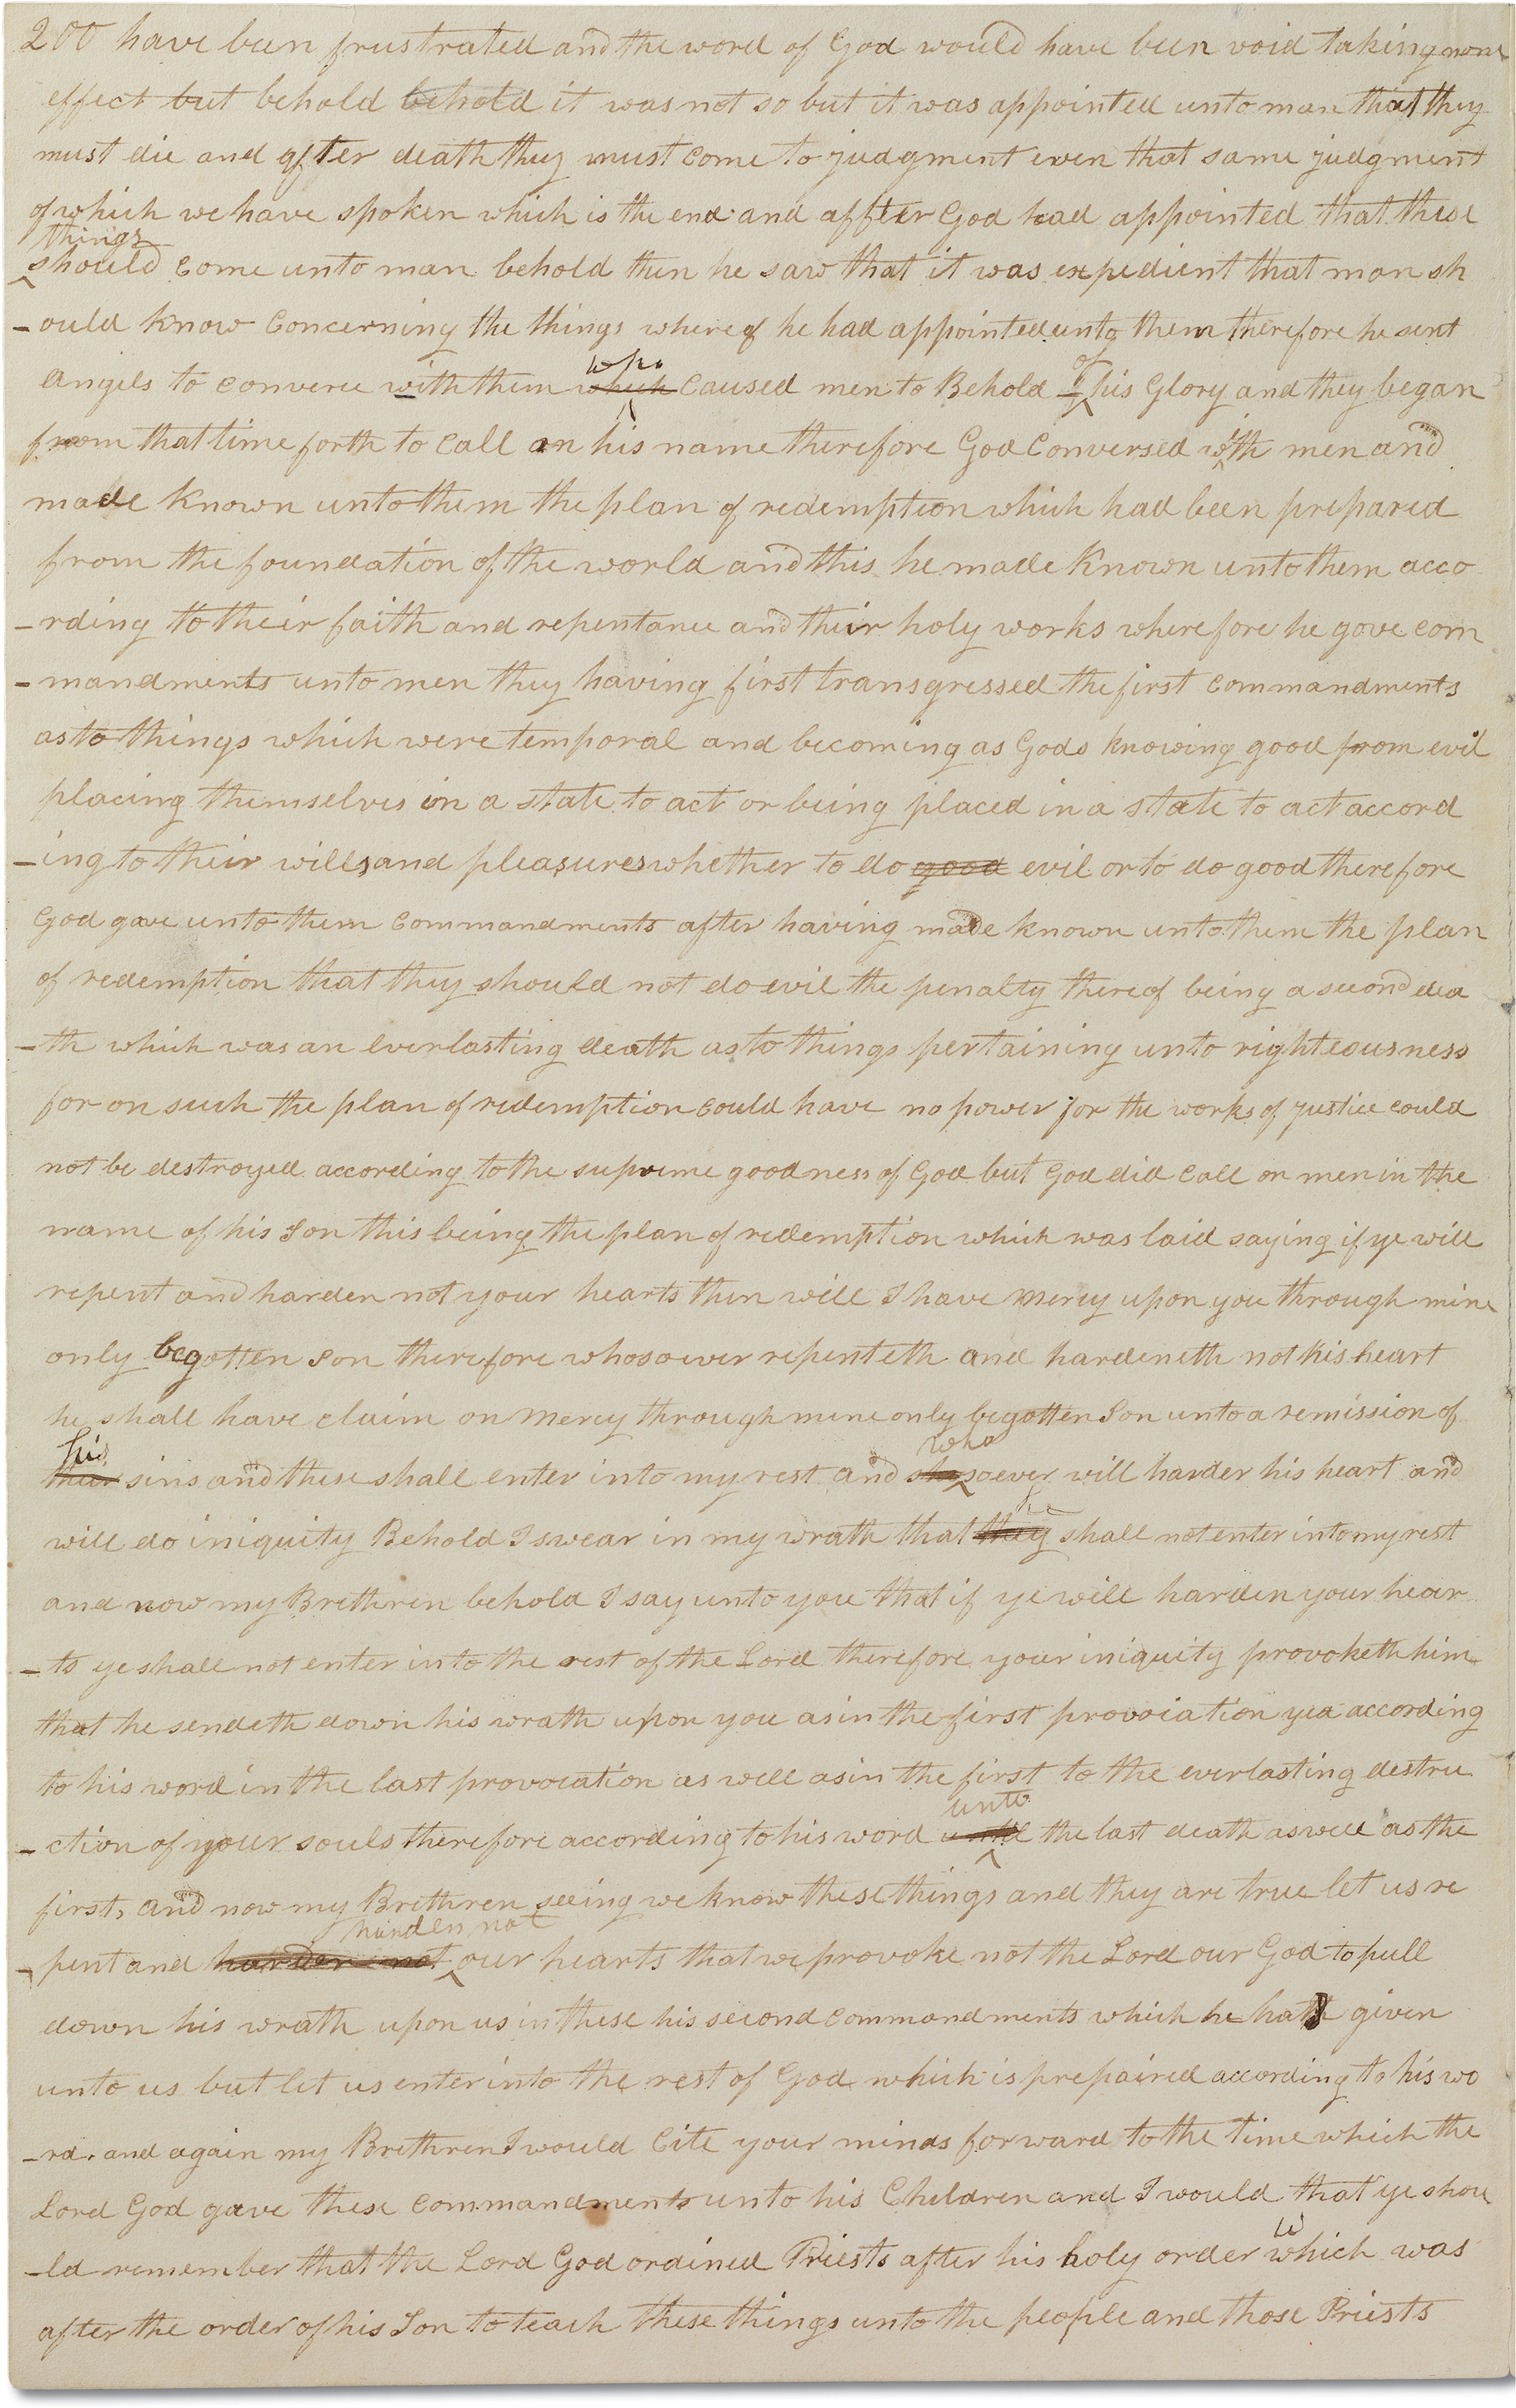 200 have been frustrated and the word of God would have been void taking none
effect but behold behold it was not so but it was appointed unto man that they
must die and after death they must come to judgment even that same judgment
of which we have spoken which is the end and affter God had appointed that these
things
should come unto man behold then he saw that it was expedient that man sh
-ould know concerning the things whereof he had appointed unto them therefore he sent
who of
angels to converse with them which caused men to Behold his Glory and they began
from that time forth to call on his name therefore God conversed with men and
made known unto them the plan of redemption which had been prepared
from the foundation of the world and this he made known unto them acco
-rding to their faith and repentance and their holy works wherefore he gove com
-mandments unto men they having first transgressed the first commandments
as to things which were temporal and becoming as Gods knowing good from evil
placing themselves in a state to act or being placed in a state to act accord
-ing to their wills and pleasures whether to do good evil or to do good therefore
God gave unto them commandments after having made known unto them the plan
of redemption that they should not do evil the penalty thereof being a second dea
-th which was an everlasting death as to things pertaining unto righteousness
for on such the plan of redemption could have no power for the works of justice could
not be destroyed according to the supreme goodness of God but God did call on men in the
name of his Son this being the plan of redemption which was laid saying if ye will
repent and harden not your hearts then will I have mercy upon you through mine
only begotten Son therefore whosoever repenteth and hardeneth not his heart
he shall have claim on mercy through mine only begotten Son unto a remission of
his who
their sins and these shall enter into my rest and soever will harden his heart and
he
will do iniquity Behold I swear in my wrath that they shall not enter into my rest
and now my Brethren behold I say unto you that if ye will harden your hear
-ts ye shall not enter into the rest of the Lord therefore your iniquity provoketh him
that he sendeth down his wrath upon you as in the first provocation yea according
to his word in the last provocation as well as in the first to the everlasting destru
unto
-ction of your souls therefore according to his word until the last death as well as the
first, and now my Brethren seeing we know these things and they are true let us re
harden not
-pent and harden not our hearts that we provoke not the Lord our God to pull
down his wrath upon us in these his second commandments which he hath given
unto us but let us enter into the rest of God which is prepaired according to his wo
-rd. and again my Brethren I would Cite your minds forward to the time which the
Lord God gave these commandments unto his Children and I would that ye shou
-ld remember that the Lord God ordined Priests after his holy order which was
after the order of his Son to teach these things unto the people and those Priests